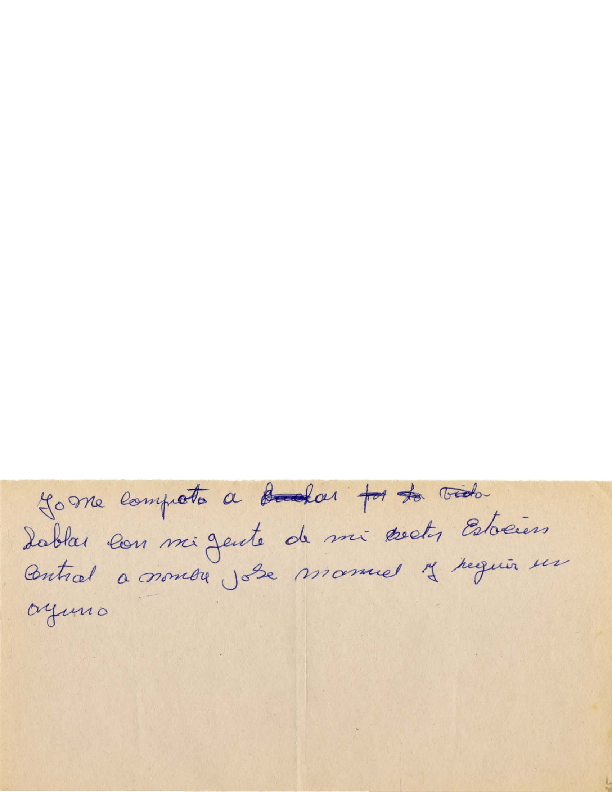 Yo me comprota a luchar por la vida
hablar con mi gente de mi sector Estación
Central a nombre jose manuel y seguir un
ayuno